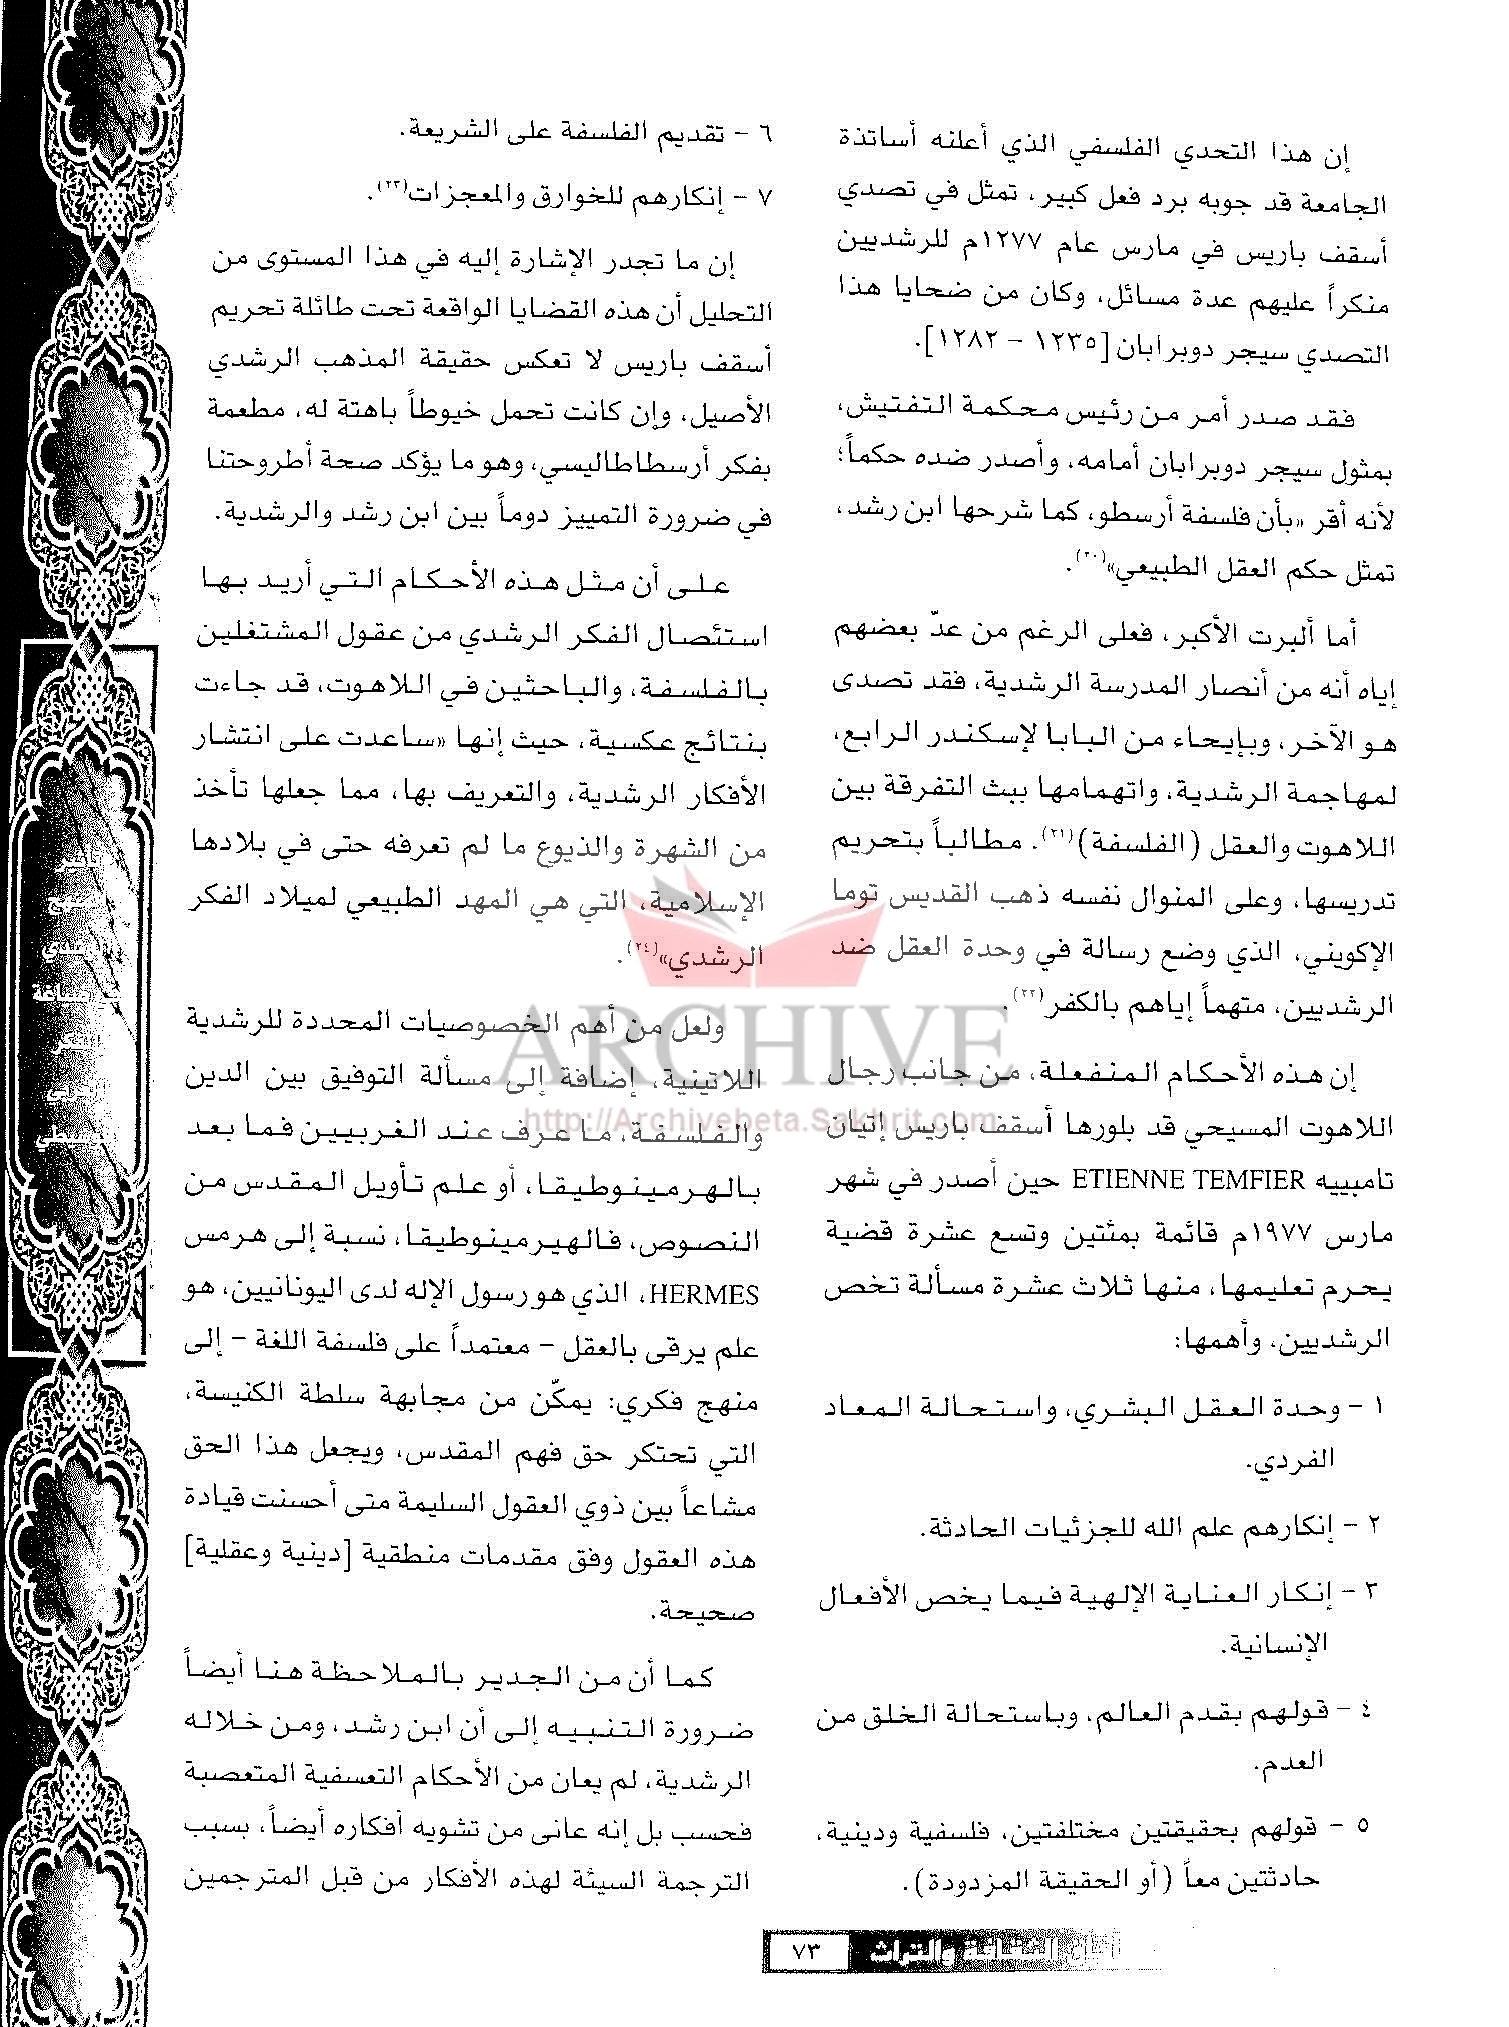 إن هذا التحدي الفلسفي الذي أعلنه أساتذة
الجامعة قد جوبه برد فعل كبير، تمثل في تصدي
أسقف باريس في مارس عام ١٢٧٧م للرشديين
منكراً عليهم عدة مسائل، وكان من ضحايا هذا
التصدي سيجر دوبرابان [١٢٣٥ - ١٢٨٢].
فقد صدر أمر من رئيس محكمة التفتيش،
بمثول سيجر دوبرابان أمامه، وأصدر ضده حكماً؛
لأنه أقر «بأن فلسفة أرسطو، كما شرحها ابن رشد،
تمثل حكم العقل الطبيعي»(٢٠).
أما ألبرت الأكبر، فعلى الرغم من عدّ بعضهم
إياه أنه من أنصار المدرسة الرشدية، فقد تصدى
هو الآخر، وبإيحاء من البابا لإسكندر الرابع،
لمهاجمة الرشدية، واتهمامها ببث التفرقة بين
اللاهوت والعقل (الفلسفة)(٢١). مطالباً بتحريم
تدريسها، وعلى المنوال نفسه ذهب القديس توما
الإكويني، الذي وضع رسالة في وحدة العقل ضد
الرشديين، متهماً إياهم بالكفر(٢٢).
إن هذه الأحكام المنفعلة، من جانب رجال
اللاهوت المسيحي قد بلورها أسقف باريس إتيان
تامبييه ETIENNE TEMFIER حين أصدر في شهر
مارس ١٩٧٧م قائمة بمئتين وتسع عشرة قضية
يحرم تعليمها، منها ثلاث عشرة مسألة تخص
الرشديين، وأهمها:
١ - وحدة العقل البشري، واستحالة المعاد
الفردي.
٢ - إنكارهم علم الله للجزئيات الحادثة.
٣ - إنكار العناية الإلهية فيما يخص الأفعال
الإنسانية.
٤ - قولهم بقدم العالم، وباستحالة الخلق من
العدم.
٥ - قولهم بحقيقتين مختلفتين، فلسفية ودينية،
حادثتين معاً (أو الحقيقة المزدودة).
٦ - تقديم الفلسفة على الشريعة.
٧ - إنكارهم للخوارق والمعجزات(٢٣).
إن ما تجدر الإشارة إليه في هذا المستوى من
التحليل أن هذه القضايا الواقعة تحت طائلة تحريم
أسقف باريس لا تعكس حقيقة المذهب الرشدي
الأصيل، وإن كانت تحمل خيوطاً باهتة له، مطعمة
بفكر أرسطاطاليسي، وهو ما يؤكد صحة أطروحتنا
في ضرورة التمييز دوماً بين ابن رشد والرشدية.
على أن مثل هذه الأحكام التي أريد بها
استئصال الفكر الرشدي من عقول المشتغلين
بالفلسفة، والباحثين في اللاهوت، قد جاءت
بنتائج عكسية، حيث إنها «ساعدت على انتشار
الأفكار الرشدية، والتعريف بها، مما جعلها تأخذ
من الشهرة والذيوع ما لم تعرفه حتى في بلادها
الإسلامية، التي هي المهد الطبيعي لميلاد الفكر
الرشدي»(٢٤).
ولعل من أهم الخصوصيات المحددة للرشدية
اللاتينية، إضافة إلى مسألة التوفيق بين الدين
والفلسفة، ما عرف عند الغربيين فما بعد
بالهرمينوطيقا، أو علم تأويل المقدس من
النصوص، فالهيرمينوطيقا، نسبة إلى هرمس
HERMES، الذي هو رسول الإله لدى اليونانيين، هو
علم يرقى بالعقل - معتمداً على فلسفة اللغة - إلى
منهج فكري: يمكّن من مجابهة سلطة الكنيسة،
التي تحتكر حق فهم المقدس، ويجعل هذا الحق
مشاعاً بين ذوي العقول السليمة متى أحسنت قيادة
هذه العقول وفق مقدمات منطقية [دينية وعقلية]
صحيحة.
كما أن من الجدير بالملاحظة هنا أيضاً
ضرورة التنبيه إلى أن ابن رشد، ومن خلاله
الرشدية، لم يعان من الأحكام التعسفية المتعصبة
فحسب بل إنه عانى من تشويه أفكاره أيضاً، بسبب
الترجمة السيئة لهذه الأفكار من قبل المترجمين
ARCHIVE
http://Archivebeta.Sakhrit.com
آفاق الثقافة والتراث ٧٣